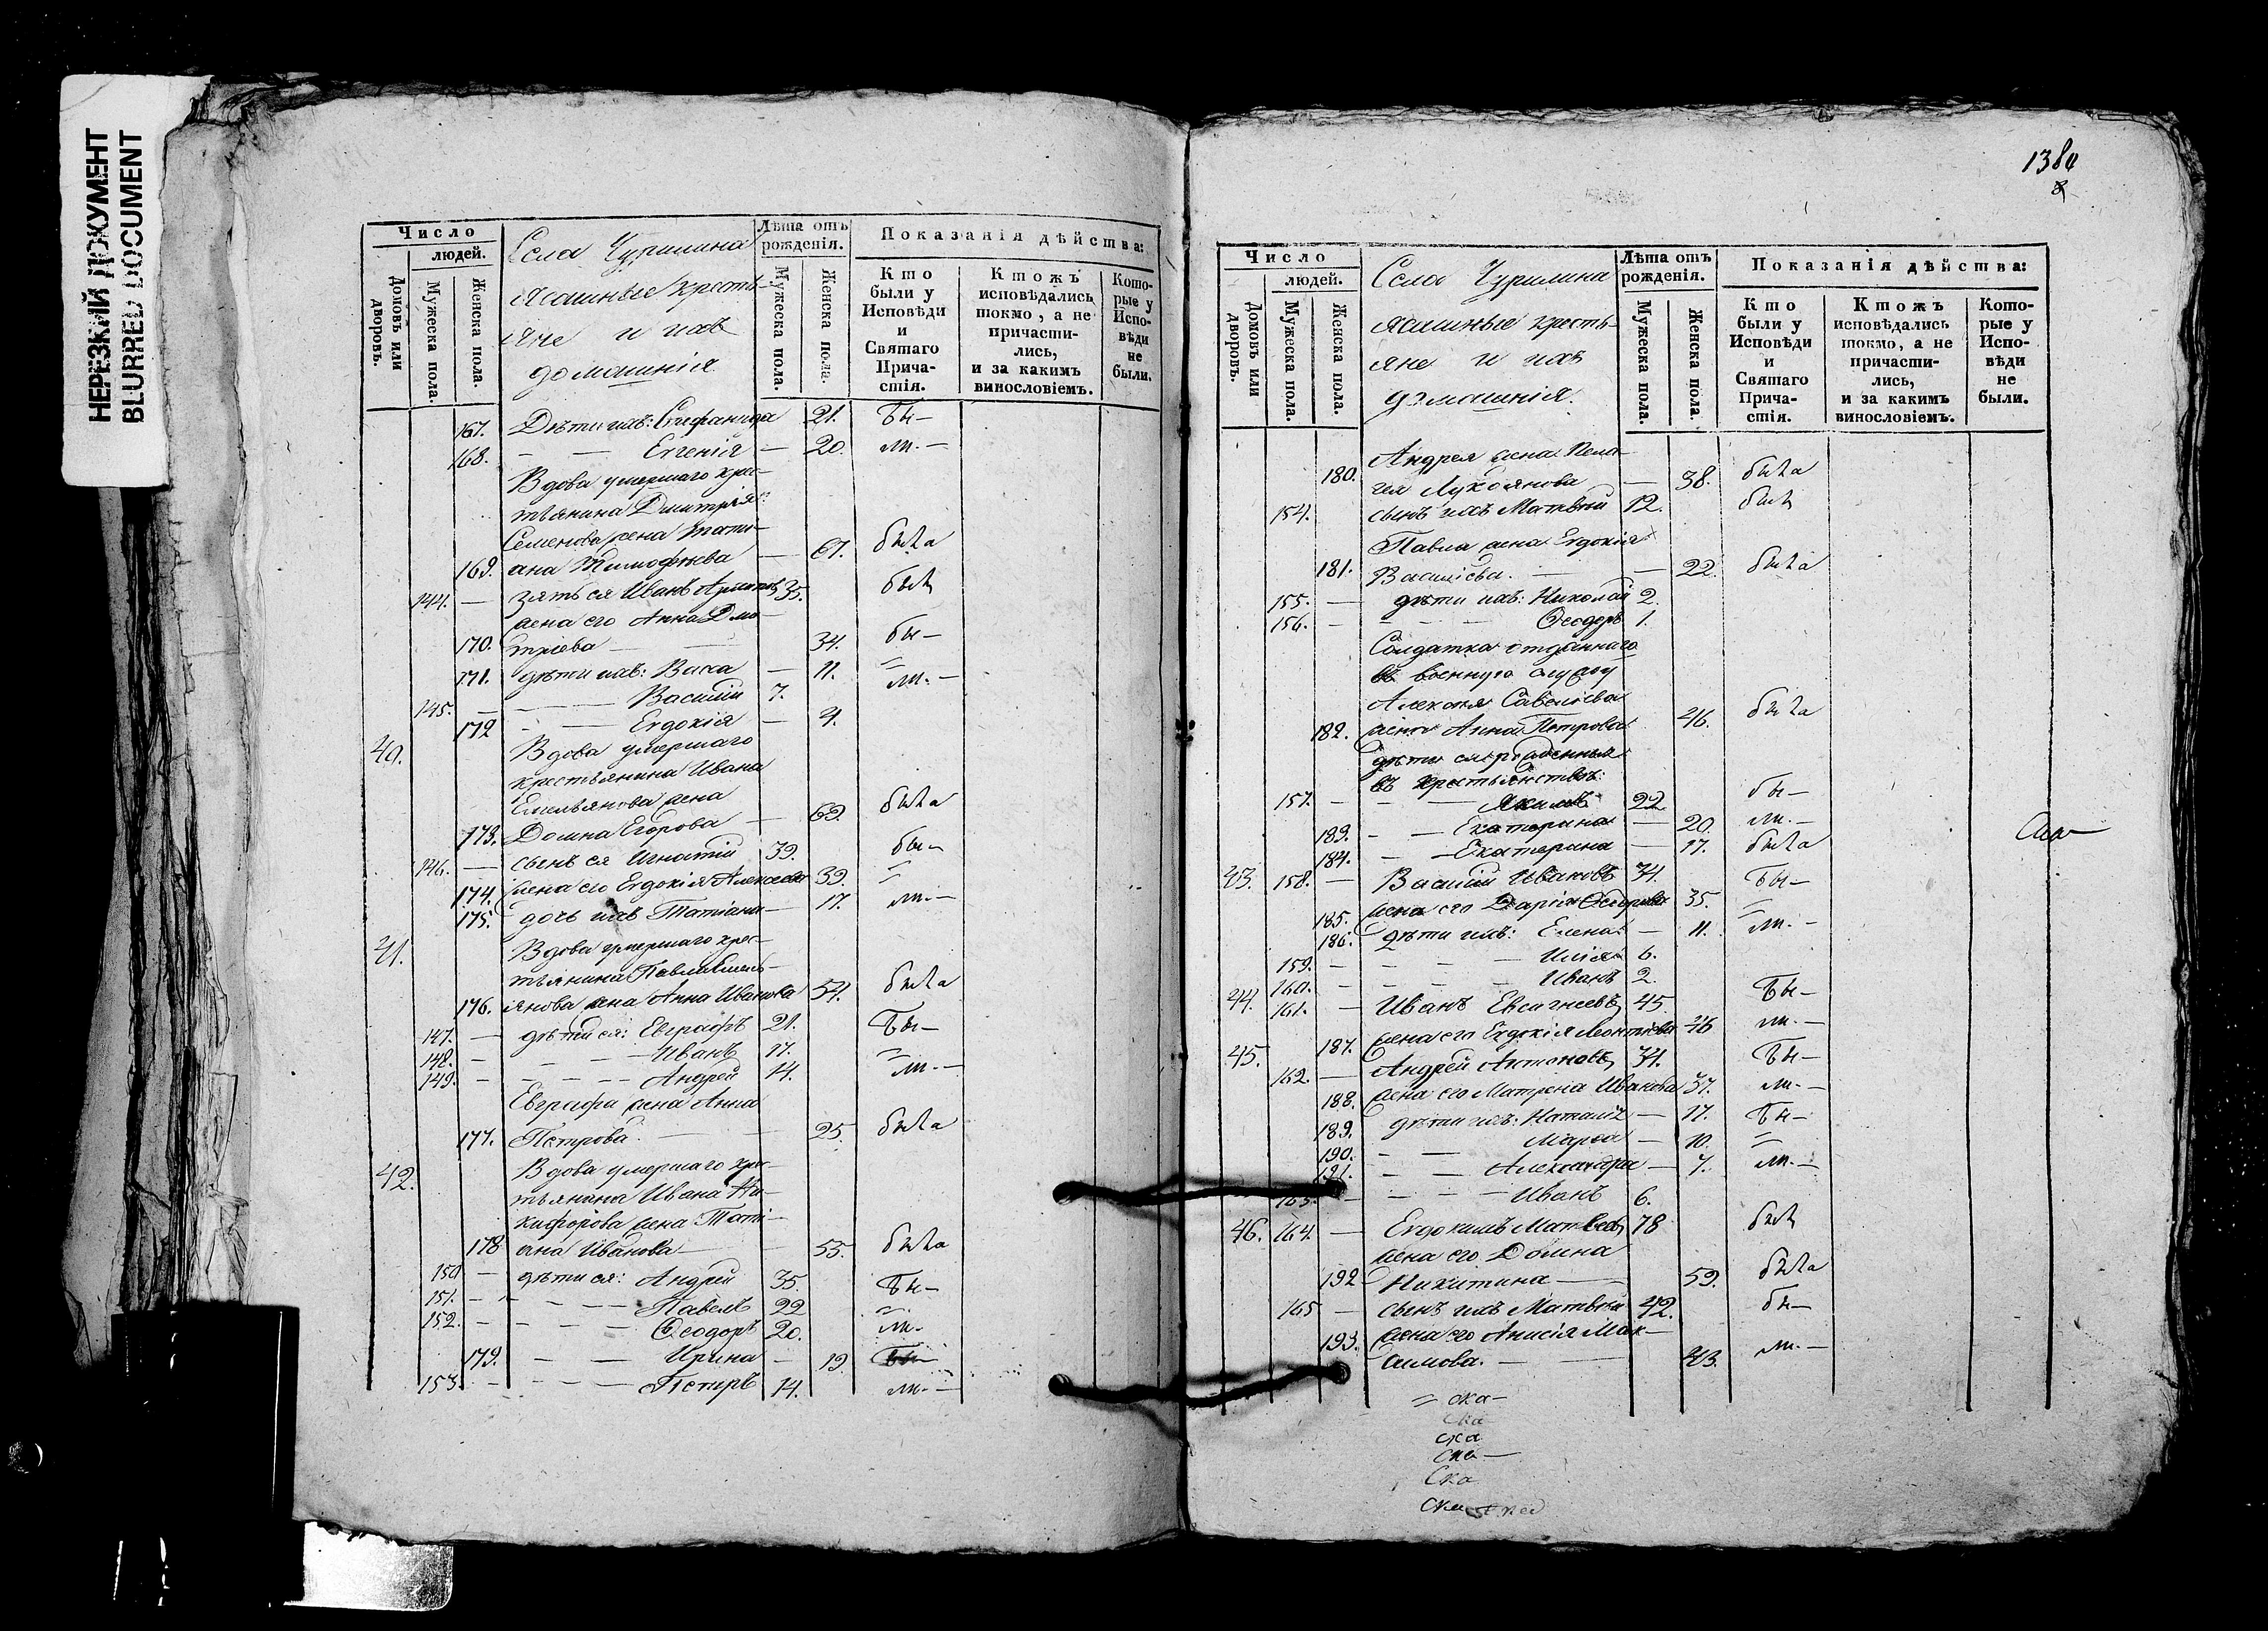 НЕРЕЗКИЙ ДОКУМЕНТ
BLURRED DOCUMENT
Число
людей.
Домовъ или дворовъ.
Мужеска пола.
Женска пола.
Села Чурилина
ясашные кресть-
яне и ихъ
домашнія
Лѣта отъ рожденія.
Мужеска пола.
Женска пола.
Показанія дѣйства:
Кто были у Исповѣди и Святаго Прича- стія.
Ктожъ исповѣдались токмо, а не причасти- лись, и за какимъ винословіемъ.
Кото- рые у Испо- вѣди не были.
167. Дѣти ихъ: Стефанида 21. бы-
168. — — Евгенія — 20. ли. —
Вдова умершаго крес-
тьянина Дмитрія
Семенова жена Тати-
169. ана Тимофѣева — 67. была
144. — зять ея Иванъ 35. былъ
жена его Анна Дми-
170. тріева — 34. бы-
171. дѣти ихъ: Васса — 11. =
145. — — Василій 7. ли. —
172 — — Евдокія — 4.
40. Вдова умершаго
крестьянина Ивана
Емельянова жена
173. Домна Егорова — 62. была
146. — сынъ ея Игнатій 39. бы-
174. жена его Евдокія Алексѣева 39. =
175. дочь ихъ Татіана — 17. ли. —
41. Вдова умершаго крес-
тьянина Павла Емель-
176. янова жена Анна Иванова 54. была
147. — дѣти ея: Евграфъ 21. бы-
148. — — — — Иванъ 17. =
149. — — — — Андрей 14. ли. —
Евграфа жена Анна
177. Петрова. — — 25. была
42. Вдова умершаго крес-
тьянина Ивана Ни-
кифорова жена Тати-
178 ана Иванова — — 55. была
150 — дѣти ея: Андрей 35. бы-
151. — — — — Павелъ 22 =
152. — — — — Ѳеодоръ 20. ли.
179. — — Ирина — 19 бы-
153. — — — — Петръ 14. ли. —
1380
Число
людей.
Домовъ или дворовъ.
Мужеска пола.
Женска пола.
Села Чурилина
ясашные кресть-
яне и ихъ
домашнія.
Лѣта отъ рожденія.
Мужеска пола.
Женска пола.
Показанія дѣйства:
Кто были у Исповѣди и Святаго Прича- стія.
Ктожъ исповѣдались токмо, а не причасти- лись, и за какимъ винословіемъ.
Кото- рые у Испо- вѣди не были.
Андрея жена Пела-
180. гея Лукоянова — 38. была
154. сынъ ихъ Матвѣй 12. былъ
Павла жена Евдокія
181. Василіева. — — 22. была
155. — дѣти ихъ: Николай 2.
156. — — — — Ѳеодоръ 1.
Солдатка отданнаго
въ военную службу
Алексѣя Савеліева
182. жена Анна Петрова 46. была
дѣти ея рожденныя
въ крестьянствѣ:
157. — — — Якимъ 22. бы-
183. — — Екатерина — 20. ли. —
184. — — Екатерина — 17. была
43. 158. — Василій Ивановъ 34. бы-
185. жена его Дарія Ѳедорова 35. =
186. дѣти ихъ: Елена — 11. ли. —
159. — — — — Илія 6.
160. — — — — Иванъ 2.
44. 161. — Иванъ Евсигнеевъ 45. бы-
187. жена его Евдокія Леонтіева 46 ли. —
45. 162. — Андрей Антоновъ 34. бы-
188. жена его Матрена Иванова 37. ли. —
189. дѣти ихъ: Наталія — 17. бы-
190. — — Марѳа — 10. =
191. — — Александра — 7. ли. —
163. — — — — Иванъ 6.
46. 164. — Евдокимъ Матвеевъ 78 былъ
жена его Домна
192 Никитина — 59. была
165 — сынъ ихъ Матвѣй 42. бы-
193. жена его Анисія Мак-
симова. — — 43. ли. —
= ска-
ска
ска
ска —
Ска
ска